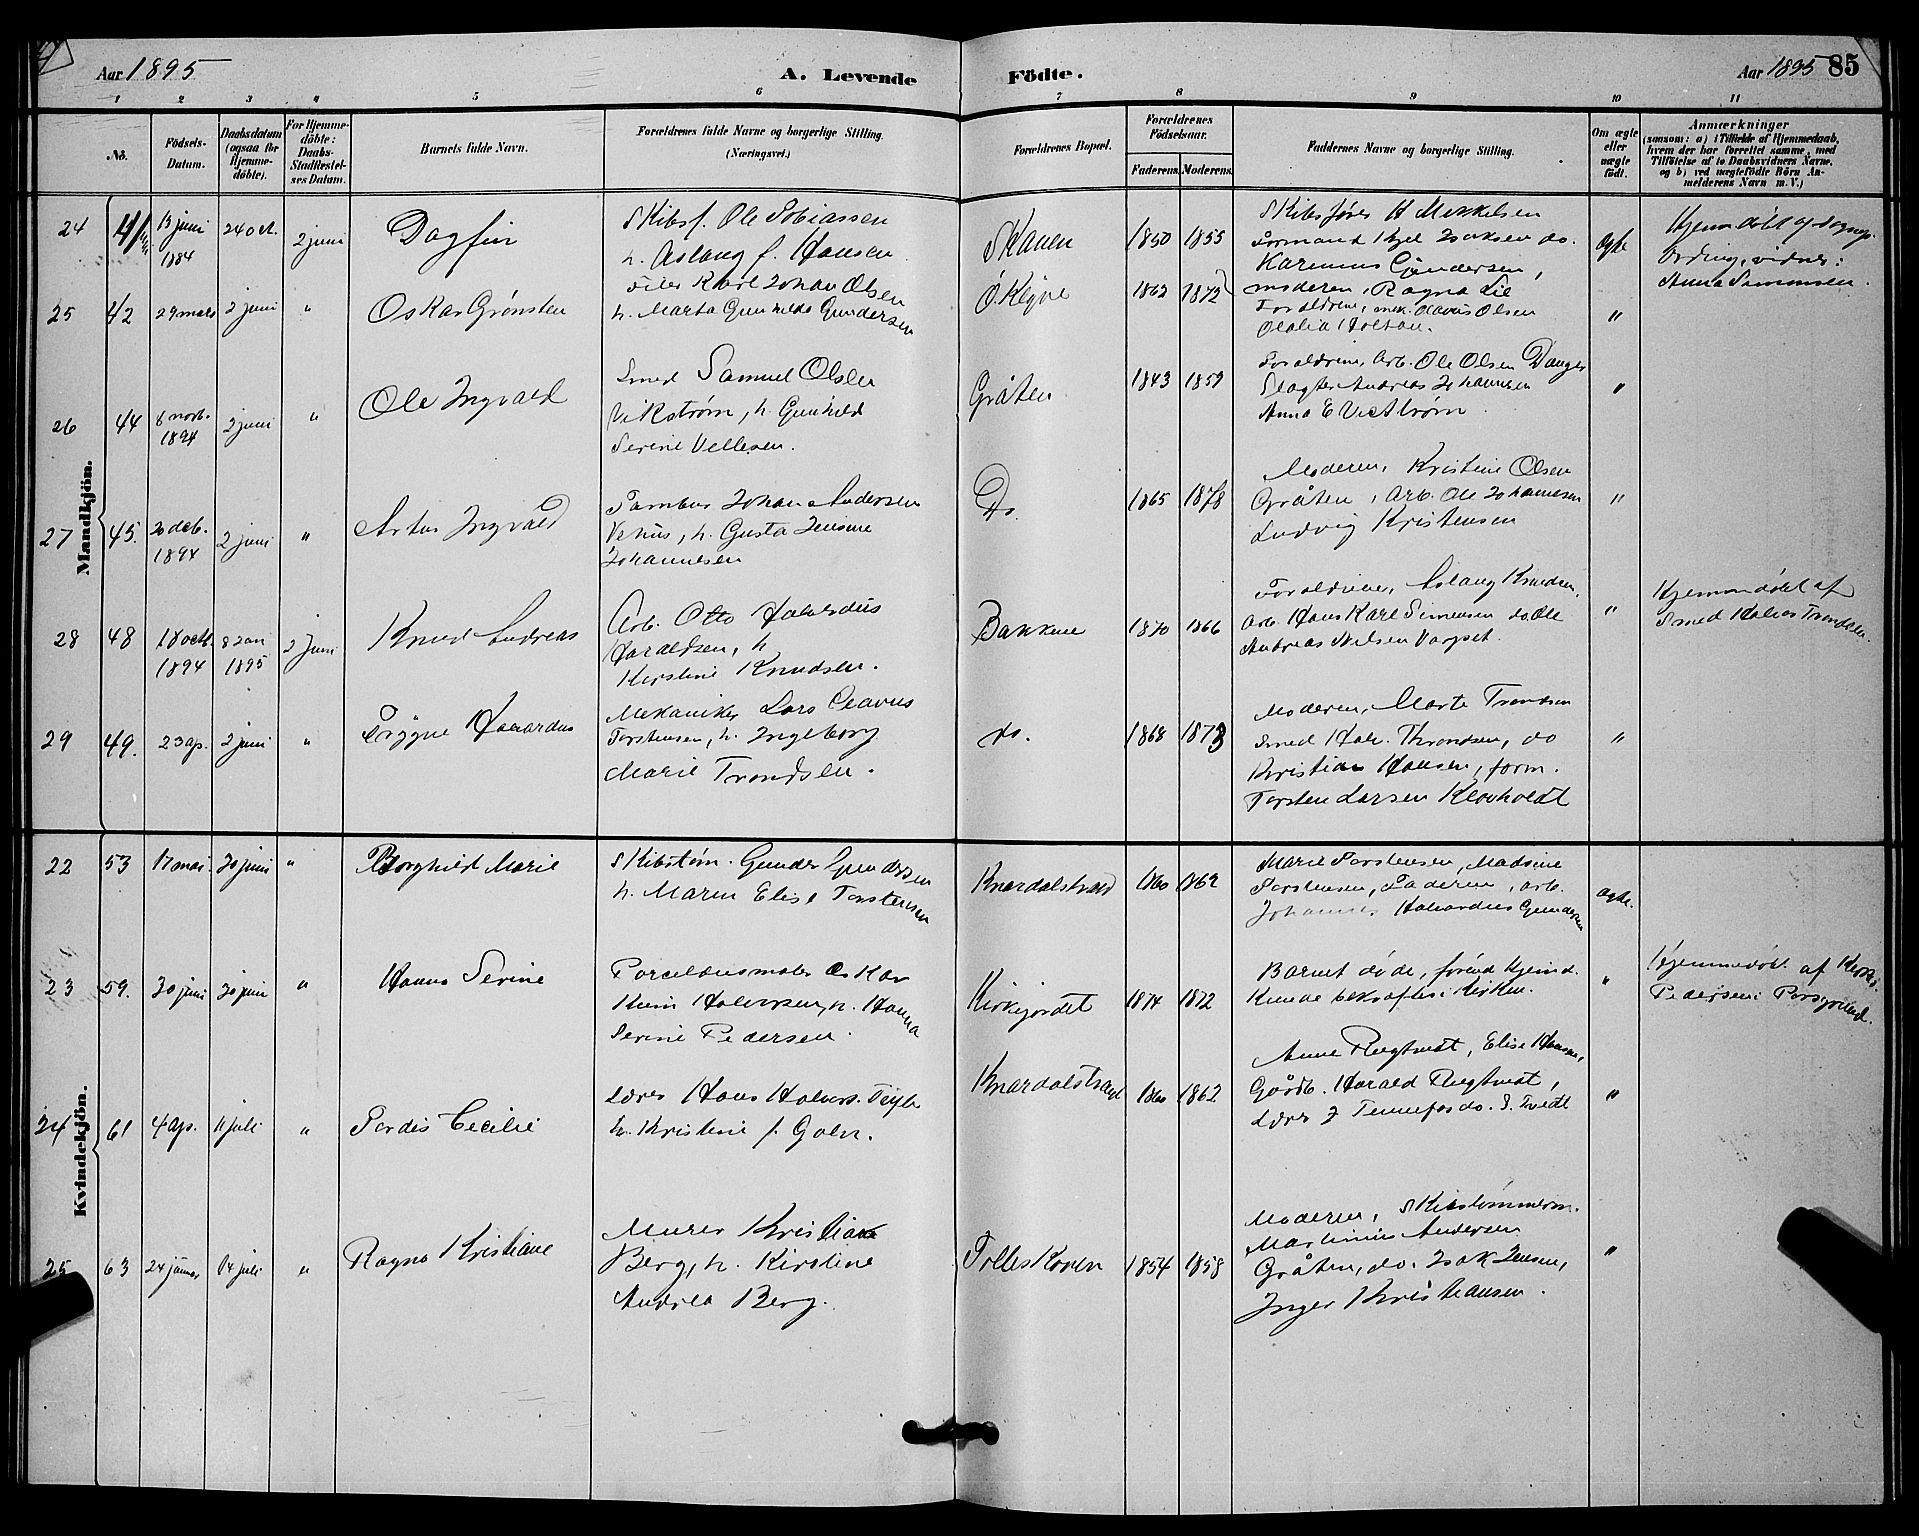 Aar 1895
A. Levende
Födte.
Aar 1895 85
1 2 3 4 5 6 7 8 9 10 11
No.
Födsels-Datum.
Daabsdatum (ogsaa for Hjemme-döbte).
For Hjemme-döbte: Daabs-Stadfæstel-ses Datum.
Barnets fulde Navn.
Forældrenes fulde Navne og borgerlige Stilling. (Næringsvei.)
Forældrenes Bopæl.
Forældrenes Födselsaar.
Faderens. Moderens.
Faddernes Navne og borgerlige Stilling.
Om ægte eller uægte födt.
Anmærkninger
(saasom: a) i Tilfælde af Hjemmedaab, hvem der har forrettet samme, med Tilföielse af to Daabsvidners Navne, og b) ved uægtefödte Börn Anmelderens Navn m. V.)
Mandkjön.
24 41 13 juni 1884 24 oct. 2 juni Dagfin
Skibsf. Ole Tobiassen
h. Aslaug f. Hansen
Skauen 1850 1855
Skibsfører H Mikkelsen
Formand Kjel Isaksen do.
Karinius Gundersen,
ægte
Hjemdøbt af
vidner:
Anna Simonsen.
25 42 29 mars 2 juni " Oskar Grønsten
Filer Karl Johan Olsen
h. Marta Gunhilde Gundersen
Ø. Klyve 1862 1872
moderen, Ragna Lie
Forældrene, mek. Olavus Olsen
Olalia Holtan.
"
26 44 6 novb. 1894 2 juni " Ole Ingvald
Smed Samuel Olsen
Vikstrøm, h. Gunhild
Serine Vellesen.
Gråten 1843 1859
Forældrene, Arb. Ole Olsen Danger
Slagter Andreas Johannesen
Anna E Vickstrøm.
"
27 45. 20 dcb. 1894 2 juni " Artur Ingvald
Tambur Johan Andersen
Vehus, h. Gusta Jensine
Johannesen
Do. 1865 1878
Moderen, Kristine Olsen
Gråten, Arb. Ole Johannesen
Ludvig Kristensen
"
28 48 18 octb. 1894 8 jan 1895 2 juni Knud Andreas
Arb. Otto Halvardus
Haraldsen, h
Kirstine Knudsen.
Bakkene 1870 1866
Forældrene, Aslaug Knudsen,
Arb. Hans Karl Simensen do. Ole
Andreas Nilsen Vorpet.
"
Hjemmedøbt af
Smed Halvor Trondsen.
29 49. 23 ap. 2 juni " Trygve Havardus
Mekaniker Lars Olavus
Torstensen, h. Ingeborg
Marie Trondsen.
do. 1868 1873
Moderen, Marte Trondsen
Smed Halv. Throndsen, do
Kristian Hansen, form.
Torsten Larsen Klovholdt
"
Kvindekjön.
22 53 17 mai 30 juni " Borghild Marie
Skibstøm. Gunder Gundersen
h. Maren Elise Torstensen
Knardalstrand 1860 1862
Marie Torstensen, Madsine
Torstensen, Faderen, arb.
Johannes Halvardus Gundersen
ægte.
23 59. 30 juni 30 juni " Hanna Serine
Porcelænsmaler Oskar
Halvorsen, h. Hanna
Serine Pedersen.
Kirkejordet 1874 1872
Barnet døde, førend Hjemd.
Kunde bekræftes i Kirken.
"
Hjemmedøbt af Kirst.
Pedersen Porsgrund.
24 61 4 ap. 11 juli " Tordis Cecilie
Lærer Hans Halvors. Teigh
h. Kristine f. Galn.
Knardalstrand 1860 1862
Anne Rugtvedt, Elise Hansen,
Gårdb. Harald Rugtvedt,
Lærer J Tennefos do. S. Tvedt
"
25 63 24 januar 14 juli " Ragna Kristiane
Murer Kristian
Berg, h. Kirstine
Andrea Berg.
Tolleskoven 1854 1858
Moderen, Skibstømmerm.
Martinius Andersen
Gråten, do. Isak Jensen,
Inger Kristiansen.
"